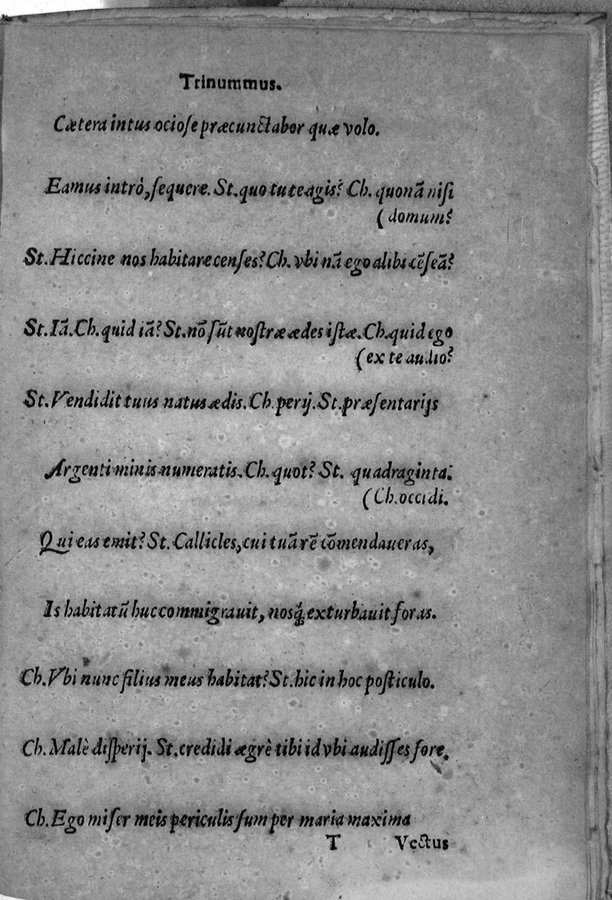 Trinummus.
Cætera intus ociose præcunctabor quæ volo.
Eamus intrò, sequere. St. quo tu te agis? Ch. quonã nisi
(domum?
St. Hiccine nos habitare censes? Ch. vbi nã ego alibi cẽseã?
St. Iã. Ch. quid iã? St. nõ sũt nostræ ædes istæ. Ch. quid ego
(ex te audio?
St. Vendidit tuus natus ædis. Ch. perij. St. præsentarijs
Argenti minis numeratis. Ch. quot? St. quadraginta.
(Ch. occidi.
Qui eas emit? St. Callicles, cui tuã rẽ cõmendaueras,
Is habitatũ huc commigrauit, nosq; exturbauit foras.
Ch. Vbi nunc filius meus habitat? St. hic in hoc posticulo.
Ch. Malè disperij. St. credidi ægrè tibi id vbi audisses fore.
Ch. Ego miser meis periculis sum per maria maxima
T Vectus